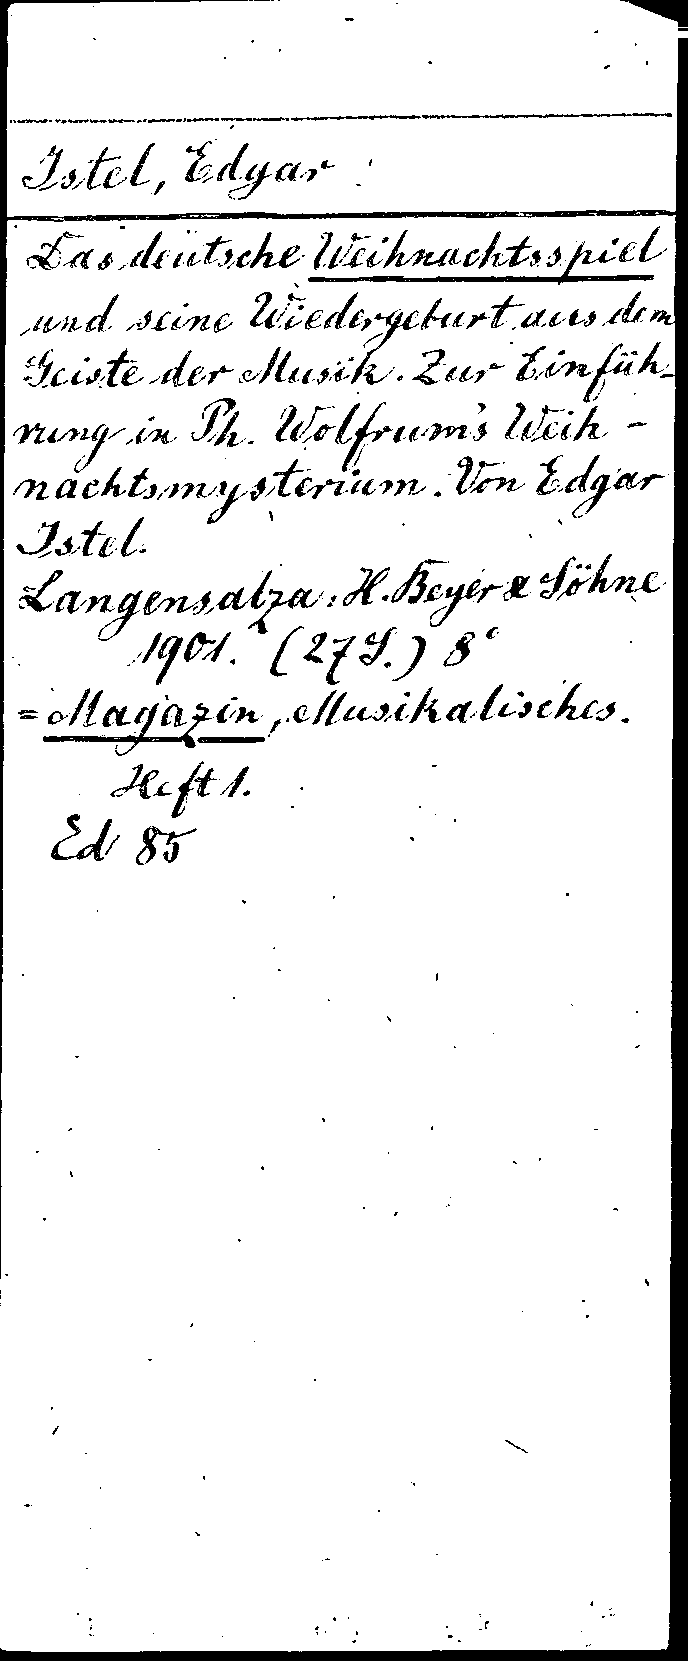 Istel, Edgar
Das deutsche Weihnachtsspiel
und seine Wiedergeburt aus dem
Geiste der Musik. Zur Einfüh-
rung in Ph. Wolfrum's Weih-
nachtsmysterium. Von Edgar
Istel.
Langensalza: H. Beyer & Söhne
1901. (27 S.) 8°
= Magazin, Musikalisches.
Heft 1.
Ed 85